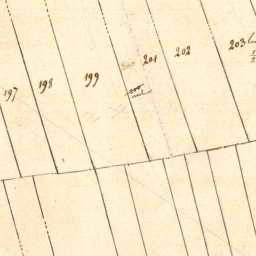 197
198
199
200
201
202
203